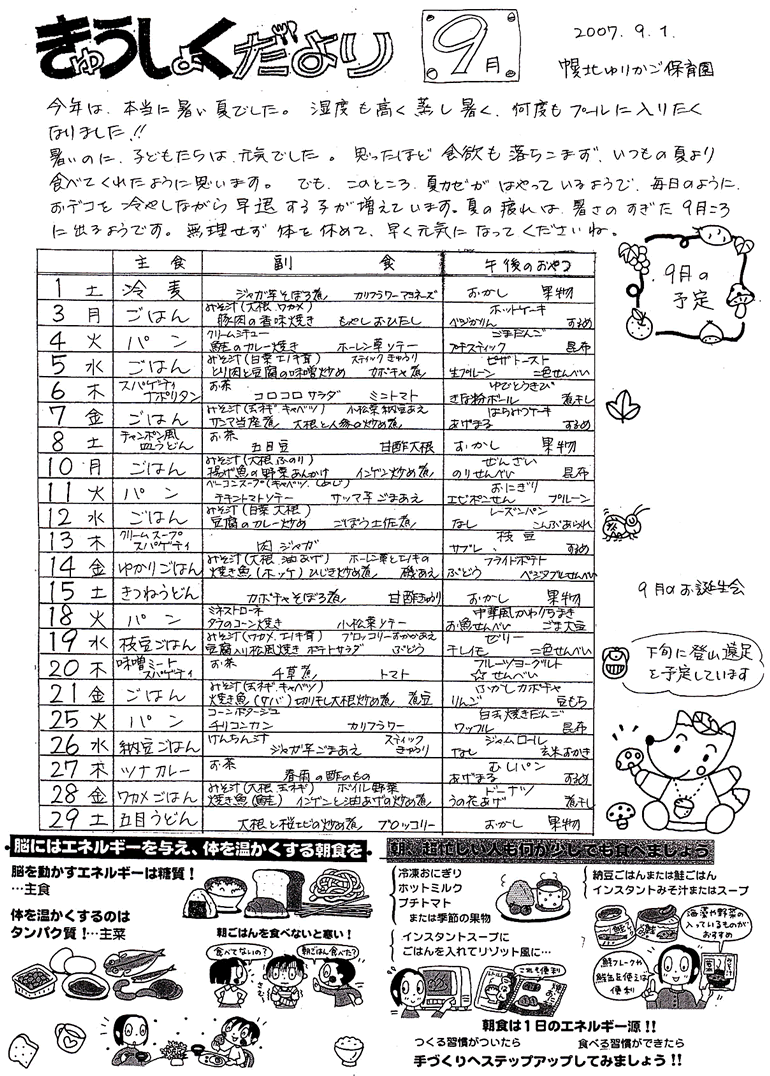 きゅうしょくだより
9月
2007.9.1.
幌北ゆりかご保育園
今年は、本当に暑い夏でした。湿度も高く蒸し暑く、何度もプールに入りたく
なりました!!
暑いのに、子どもたちは、元気でした。思ったほど食欲も落ちこまず、いつもの夏より
食べてくれたように思います。でも、このところ、夏カゼがはやっているようで、毎日のように、
おデコを冷やしながら早退する子が増えています。夏の疲れは、暑さのすぎた9月ころ
に出るようです。無理せず体を休めて、早く元気になってくださいね。
9月の
予定
主食 副食 午後のおやつ
1 土 冷麦 ジャガ芋そぼろ煮 カリフラワーマヨネーズ おかし 果物
3 月 ごはん みそ汁(大根、ワカメ) 豚肉の香味焼き もやしおひたし ホットケーキ するめ
4 火 パン クリームシチュー 鮭のカレー焼き ホーレン草ソテー ごまだんご プチスティック 昆布
5 水 ごはん みそ汁(白菜、エノキ茸) スティックきゅうり とり肉と豆腐の味噌炒め カボチャ煮 ピザトースト 生プルーン 二色せんべい
6 木 スパゲティナポリタン お茶 コロコロサラダ ミニトマト ゆでとうきび きな粉ボール 煮干し
7 金 ごはん みそ汁(玉ネギ、キャベツ) 小松菜納豆あえ サンマ当座煮 大根と人参の炒め煮 はちみつケーキ あげまる するめ
8 土 チャンポン風皿うどん お茶 五目豆 甘酢大根 おかし 果物
10 月 ごはん みそ汁(大根、ふのり) 揚げ魚の野菜あんかけ インゲン炒め煮 ぜんざい のりせんべい 昆布
11 火 パン ベーコンスープ(キャベツ、しめじ) チキントマトソテー サツマ芋ごまあえ おにぎり エビポンせん プルーン
12 水 ごはん みそ汁(白菜、大根) 豆腐のカレー炒め ごぼう土佐煮 レーズンパン なし こんぶあられ
13 木 クリームスープスパゲティ 肉ジャガ 枝豆 サブレ、 するめ
14 金 ゆかりごはん みそ汁(大根、油あげ) ホーレン草とエノキの 焼き魚(ホッケ) ひじき炒め煮 磯あえ フライドポテト ぶどう ベジタブルせんべい
15 土 きつねうどん カボチャそぼろ煮 甘酢きゅうり おかし 果物
18 火 パン ミネストローネ タラのコーン焼き 小松菜ソテー 中華風かわりちまき お魚せんべい ごま大豆
19 水 枝豆ごはん みそ汁(ワカメ、エノキ茸) ブロッコリーおかかあえ 豆腐入り松風焼き ポテトサラダ ぶどう ゼリー 干しイモ 二色せんべい
20 木 味噌ミートスパゲティ お茶 千草煮 トマト フルーツヨーグルト ☆せんべい
21 金 ごはん みそ汁(玉ネギ、キャベツ) 焼き魚(サバ) 切り干し大根炒め煮 煮豆 ふかしカボチャ りんご 豆もち
25 火 パン コーンポタージュ チリコンカン カリフラワー 白玉焼きだんご ワッフル 昆布
26 水 納豆ごはん けんちん汁 スティックきゅうり ジャガ芋ごまあえ ジャムロール なし 玄米おかき
27 木 ツナカレー お茶 春雨の酢のもの むしパン あげまる するめ
28 金 ワカメごはん みそ汁(大根、玉ネギ) ボイル野菜 焼き魚(鮭) インゲンと油あげの炒め煮 ドーナツ うの花あげ 煮干し
29 土 五目うどん 大根と桜エビの炒め煮 ブロッコリー おかし 果物
9月のお誕生会
下旬に登山遠足
を予定しています
脳にはエネルギーを与え、体を温かくする朝食を
脳を動かすエネルギーは糖質!
…主食
体を温かくするのは
タンパク質!…主菜
朝ごはんを食べないと寒い!
食べてないの?
朝ごはん食べた?
朝、超忙しい人も何か少しでも食べましょう
冷凍おにぎり
ホットミルク
プチトマト
または季節の果物
インスタントスープに
ごはんを入れてリゾット風に…
これも便利
納豆ごはんまたは鮭ごはん
インスタントみそ汁またはスープ
海藻や野菜の
入っているものが
おすすめ
鮭フレークや
鮭缶を使えば
便利
朝食は1日のエネルギー源!!
つくる習慣がついたら 食べる習慣ができたら
手づくりへステップアップしてみましょう!!